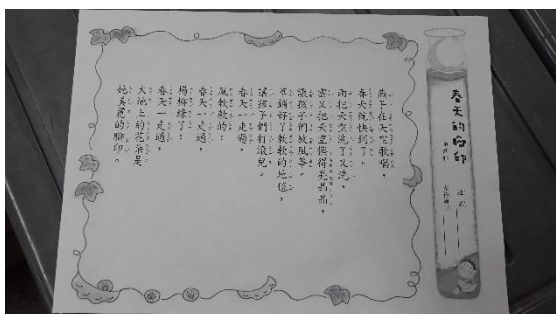 春天的腳印
燕子在天空歌唱，
春天就快到了。
雨把天空洗了又洗，
雲又把天空擦得亮晶晶，
讓孩子們放風箏。
草鋪好了軟軟的地毯，
讓孩子們打滾兒。
春天一走過，
風軟軟的；
春天一走過，
楊柳綠了；
春天一走過，
大地上的花朵是
她美麗的腳印。